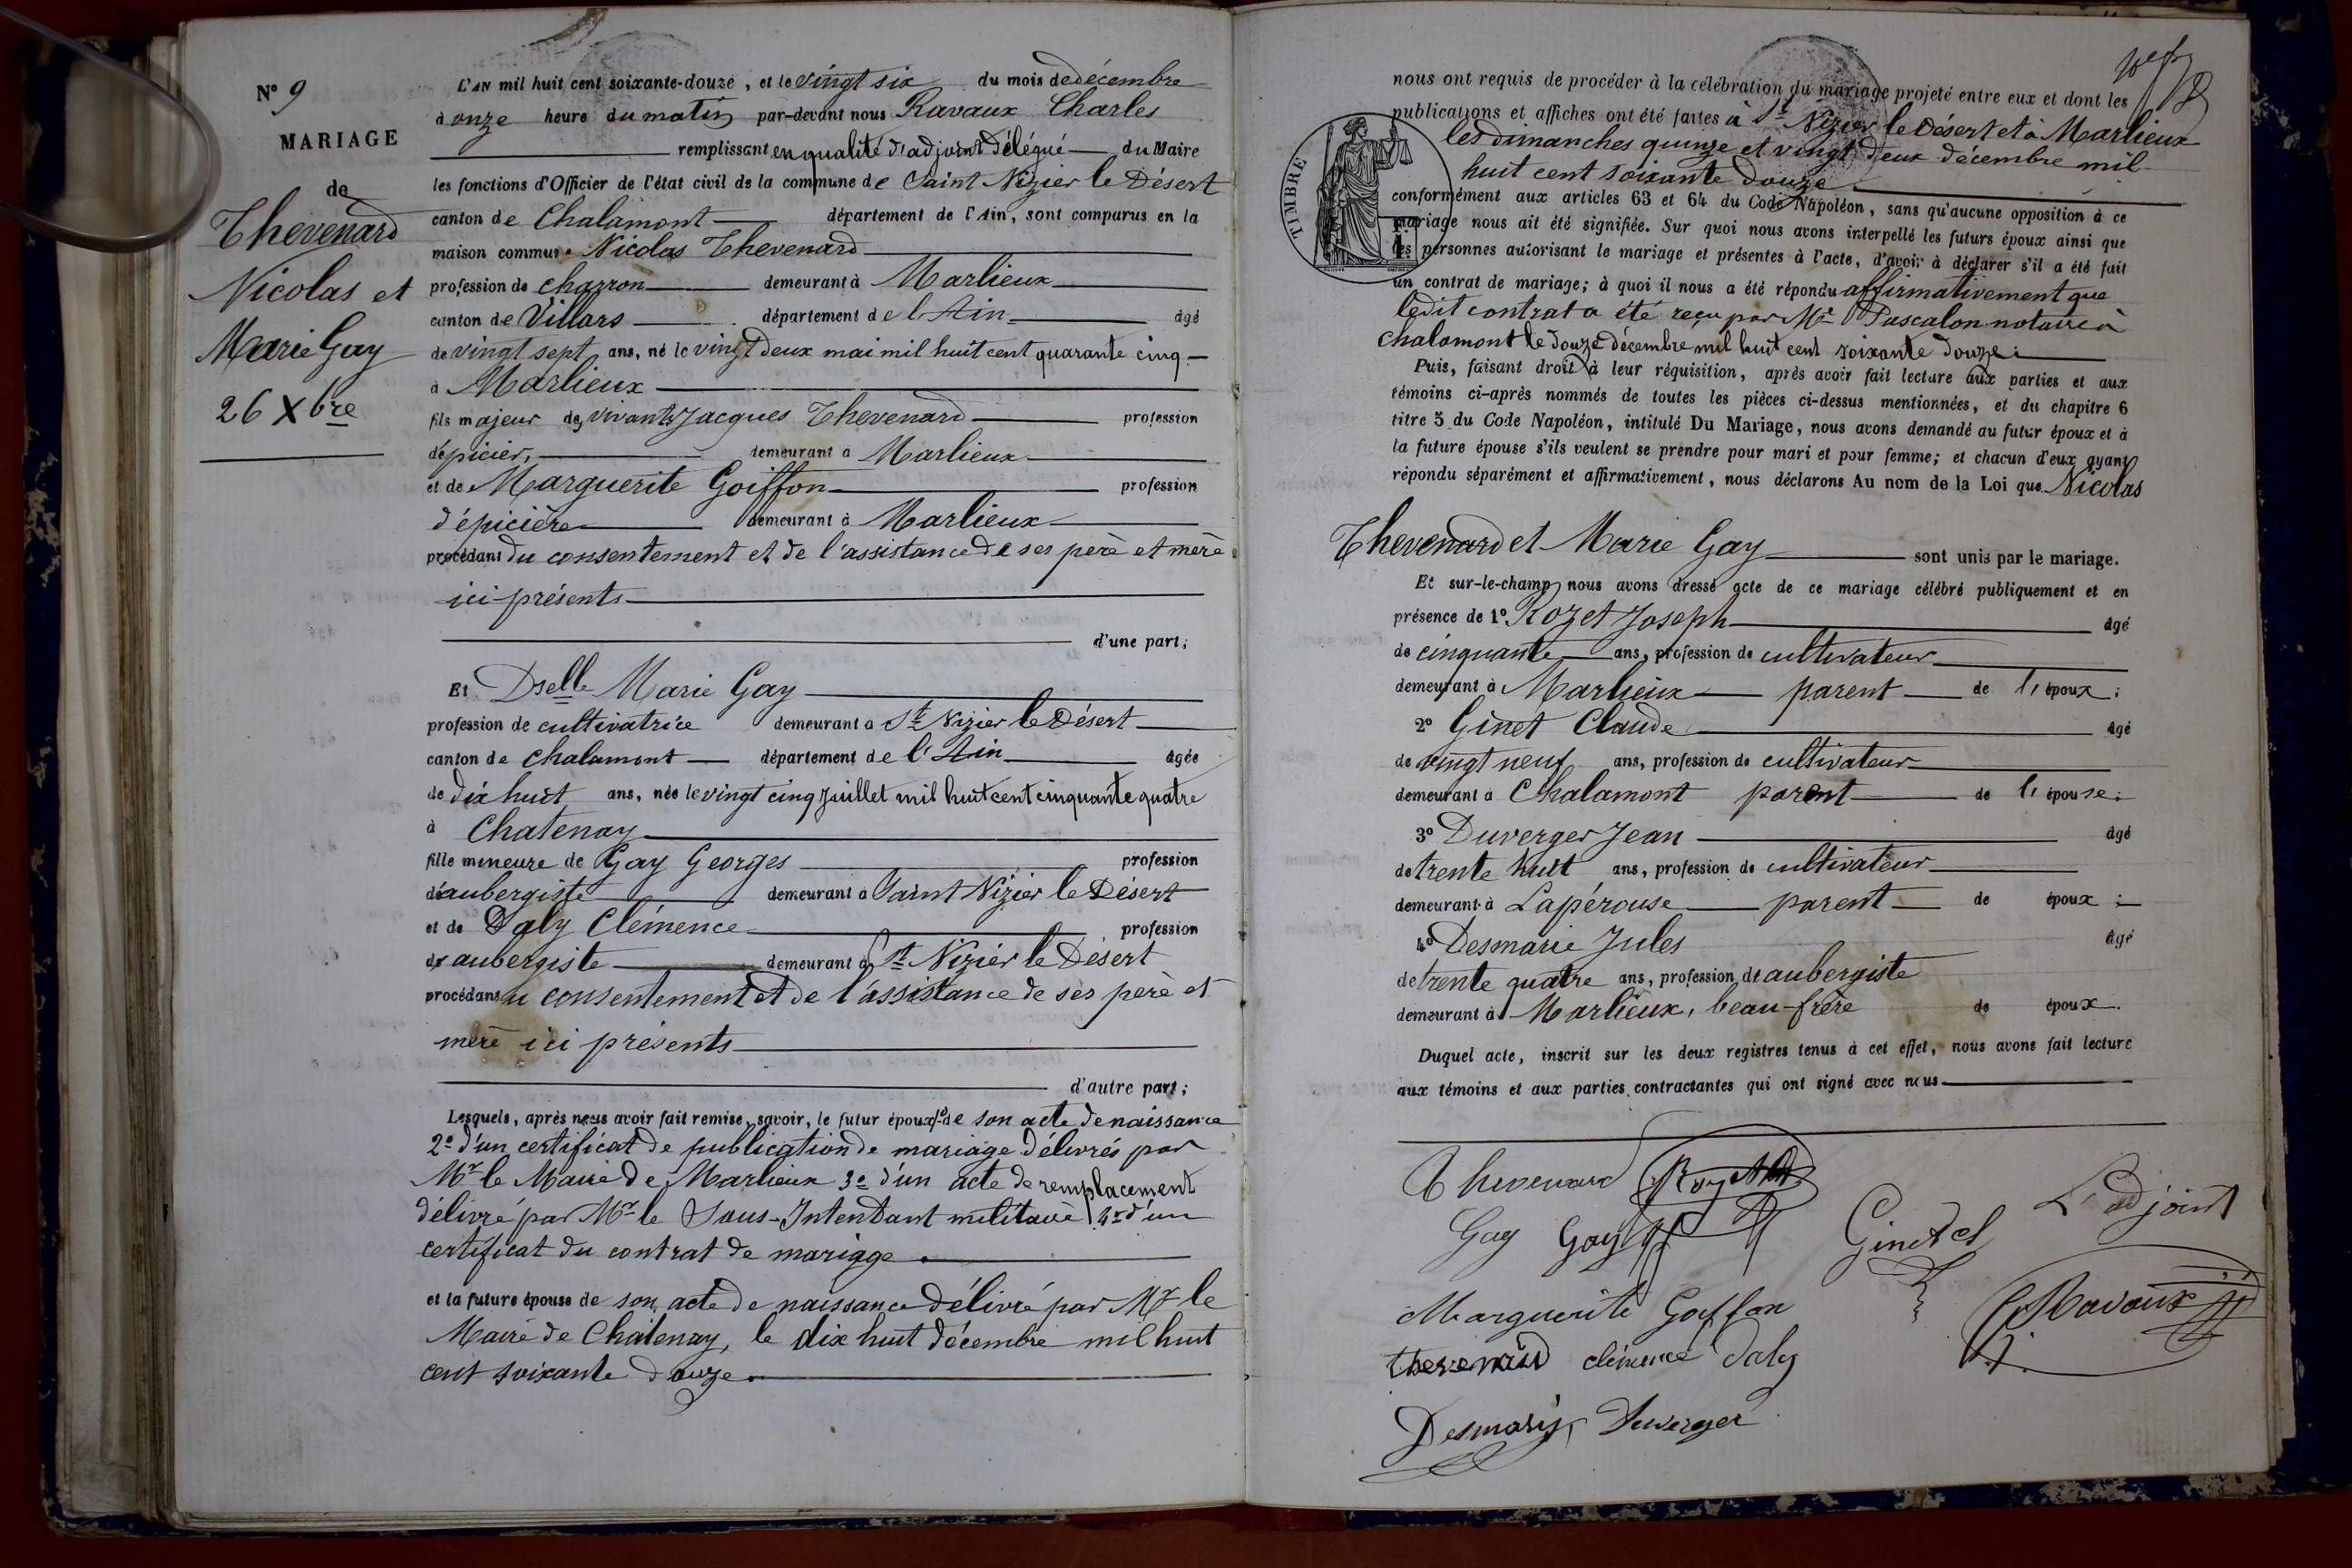 N° 9
MARIAGE
de
Thevenard
Nicolas et
Marie Gay
26 Xbre
L'AN mil huit cent soixante-douze, et le vingt six du mois de décembre
à onze heure du matin par-devant nous Ravaux Charles
remplissant en qualité d'adjoint délégué du Maire
les fonctions d'Officier de l'état civil de la commune de Saint Nizier le Désert
canton de Chalamont département de l'Ain, sont comparus en la
maison commune Nicolas Thevenard
profession de charron demeurant à Marlieux
canton de Villars département de l'Ain âgé
de vingt sept ans, né le vingt deux mai mil huit cent quarante cinq
à Marlieux
fils majeur des vivants Jacques Thevenard profession
d'épicier, demeurant à Marlieux
et de Marguerite Goiffon profession
d'épicière demeurant à Marlieux
procédant du consentement et de l'assistance de ses père et mère
ici présents
d'une part;
Et Dselle Marie Gay
profession de cultivatrice demeurant à St Nizier le Désert
canton de Chalamont département de l'Ain âgée
de dix huit ans, née le vingt cinq Juillet mil huit cent cinquante quatre
à Chatenay
fille mineure de Gay Georges profession
d'aubergiste demeurant à Saint Nizier le Désert
et de Daly Clémence profession
d'aubergiste demeurant à St Nizier le Désert
procédant du consentement et de l'assistance de ses père et
mère ici présents
d'autre part;
Lesquels, après nous avoir fait remise, savoir, le futur époux 1° de son acte de naissance
2° d'un certificat de publication de mariage délivrés par
Mr le Maire de Marlieux 3° d'un acte de remplacement
délivré par Mr le Sous-Intendant militaire 4° d'un
certificat du contrat de mariage.
et la future épouse de son acte de naissance délivré par Mr le
Maire de Châtenay, le dix huit décembre mil huit
cent soixante douze.
nous ont requis de procéder à la célébration du mariage projeté entre eux et dont les
publications et affiches ont été faites à St Nizier le Désert et à Marlieux
les dimanches quinze et vingt deux décembre mil
huit cent soixante douze
TIMBRE
conformément aux articles 63 et 64 du Code Napoléon, sans qu'aucune opposition à ce
mariage nous ait été signifiée. Sur quoi nous avons interpellé les futurs époux ainsi que
les personnes autorisant le mariage et présentes à l'acte, d'avoir à déclarer s'il a été fait
un contrat de mariage; à quoi il nous a été répondu affirmativement que
ledit contrat a été reçu par Me Pascalon notaire à
Chalamont le douze décembre mil huit cent soixante douze.
Puis, faisant droit à leur réquisition, après avoir fait lecture aux parties et aux
témoins ci-après nommés de toutes les pièces ci-dessus mentionnées, et du chapitre 6
titre 5 du Code Napoléon, intitulé Du Mariage, nous avons demandé au futur époux et à
la future épouse s'ils veulent se prendre pour mari et pour femme; et chacun d'eux ayant
répondu séparément et affirmativement, nous déclarons Au nom de la Loi que Nicolas
Thevenard et Marie Gay sont unis par le mariage.
Et sur-le-champ nous avons dressé acte de ce mariage célébré publiquement et en
présence de 1° Rozet Joseph âgé
de cinquante ans, profession de cultivateur
demeurant à Marlieux parent de l'époux;
2° Ginet Claude âgé
de vingt neuf ans, profession de cultivateur
demeurant à Chalamont parent de l'épouse;
3° Duverger Jean âgé
de trente huit ans, profession de cultivateur
demeurant à Lapérouse parent de époux;
4° Desmarie Jules âgé
de trente quatre ans, profession de aubergiste
demeurant à Marlieux, beau-frère de époux.
Duquel acte, inscrit sur les deux registres tenus à cet effet, nous avons fait lecture
aux témoins et aux parties contractantes qui ont signé avec nous
Thevenard
Gay Gay Ginet Cl L'adjoint
Marguerite Goiffon Ravaux
thevenard clémence Daly
Desmaris Duverger